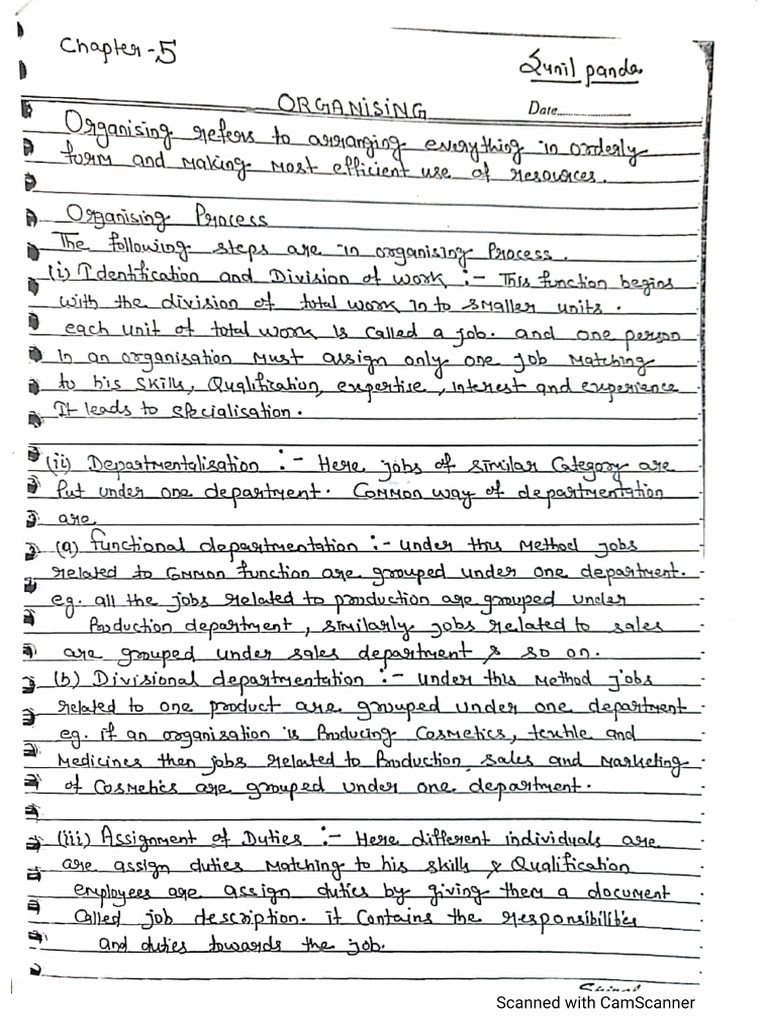 Chapter-5
Sunil panda
ORGANISING
Date
Organising refers to arranging everything in orderly
form and making most efficient use of resources.
Organising Process
The following steps are in organising Process.
(i) Identification and Division of work :- This function begins
with the division of total work in to smaller units.
each unit of total work is called a job. and one person
in an organisation must assign only one job matching
to his skills, Qualification, expertise, interest and experience
It leads to specialisation.
(ii) Departmentalisation :- Here jobs of similar Category are
Put under one department. Common way of departmentation
are
(a) functional departmentation :- under this method jobs
related to common function are grouped under one department.
eg. all the jobs related to production are grouped under
Production department, similarly jobs related to sales
are grouped under sales department & so on.
(b) Divisional departmentation :- under this method jobs
related to one product are grouped under one department
eg. if an organisation is Producing Cosmetics, textile and
Medicines then jobs related to Production, sales and Marketing
of Cosmetics are grouped under one department.
(iii) Assignment of Duties :- Here different individuals are
are assign duties matching to his skills & Qualification
employees are assign duties by giving them a document
called job description. it contains the responsibilities
and duties towards the job.
Scanned with CamScanner